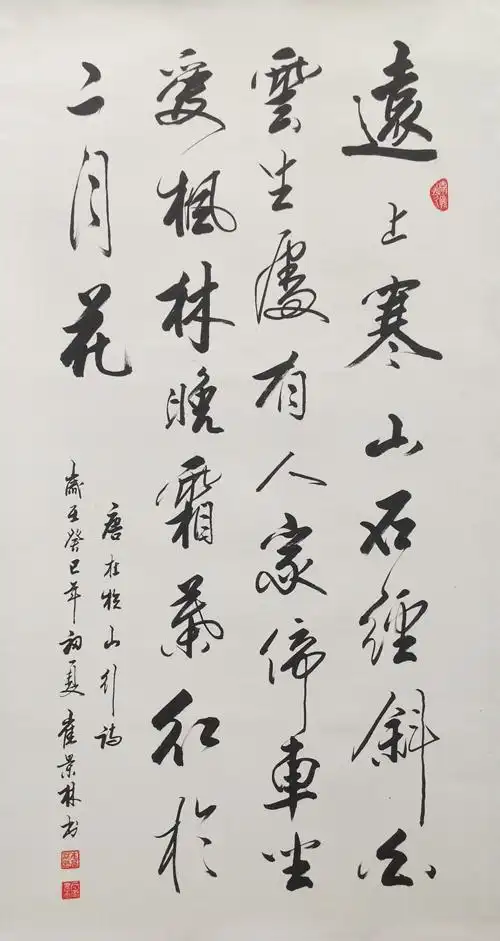 遠上寒山石經斜白
雲生處有人家停車坐
愛楓林晚霜葉紅於
二月花
唐杜牧山行詩
歲在癸巳年初夏崔景林書